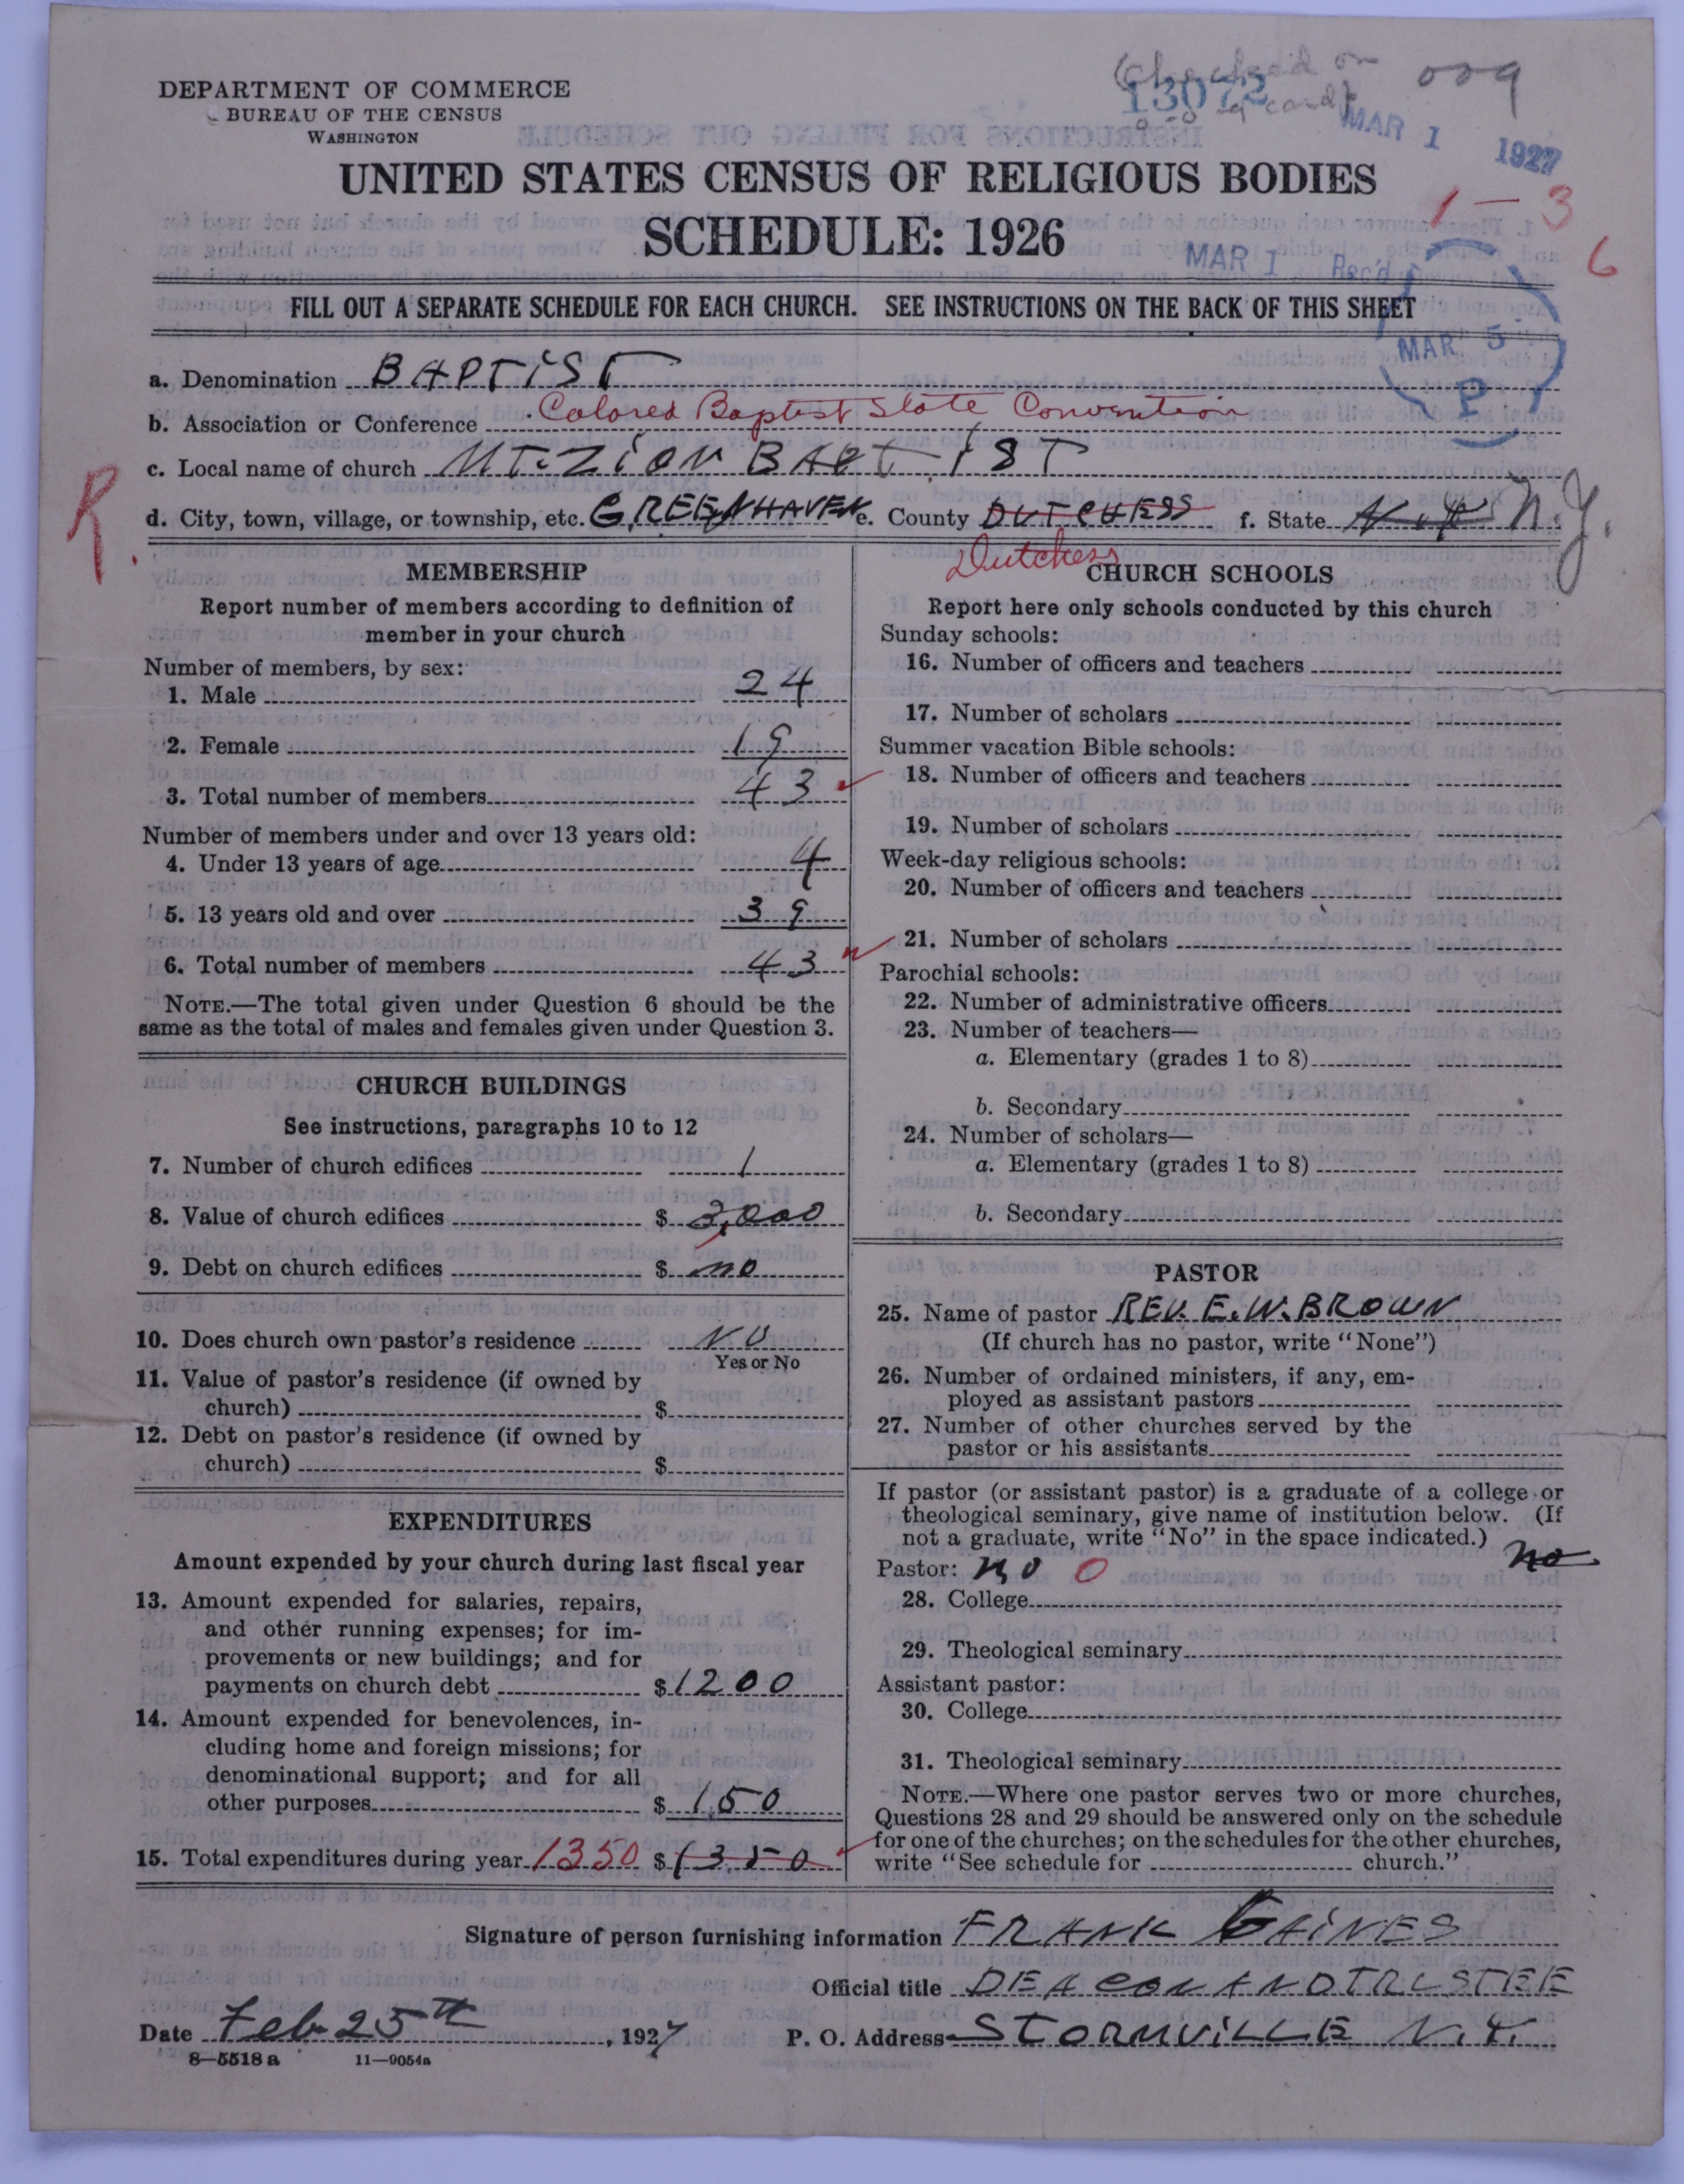 (Checked on
13072
009
card)
MAR 1 1927
DEPARTMENT OF COMMERCE
BUREAU OF THE CENSUS
WASHINGTON
UNITED STATES CENSUS OF RELIGIOUS BODIES
1-3
SCHEDULE: 1926
MAR 1 Rec'd
6
FILL OUT A SEPARATE SCHEDULE FOR EACH CHURCH. SEE INSTRUCTIONS ON THE BACK OF THIS SHEET
MAR 5
P
a. Denomination BAPTIST
b. Association or Conference Colored Baptist State Convention
c. Local name of church MT. ZION BAPTIST
R.
d. City, town, village, or township, etc. GREENHAVEN e. County DUTCHESS f. State N.Y. N.Y.
Dutchess
MEMBERSHIP
Report number of members according to definition of
member in your church
Number of members, by sex:
1. Male 24
2. Female 19
3. Total number of members 43
Number of members under and over 13 years old:
4. Under 13 years of age 4
5. 13 years old and over 39
6. Total number of members 43
NOTE.—The total given under Question 6 should be the
same as the total of males and females given under Question 3.
CHURCH BUILDINGS
See instructions, paragraphs 10 to 12
7. Number of church edifices 1
8. Value of church edifices $ 3,000
9. Debt on church edifices $ no
10. Does church own pastor's residence NO
Yes or No
11. Value of pastor's residence (if owned by
church) $
12. Debt on pastor's residence (if owned by
church) $
EXPENDITURES
Amount expended by your church during last fiscal year
13. Amount expended for salaries, repairs,
and other running expenses; for im-
provements or new buildings; and for
payments on church debt $ 1200
14. Amount expended for benevolences, in-
cluding home and foreign missions; for
denominational support; and for all
other purposes $ 150
15. Total expenditures during year 1350 $ 1350
CHURCH SCHOOLS
Report here only schools conducted by this church
Sunday schools:
16. Number of officers and teachers
17. Number of scholars
Summer vacation Bible schools:
18. Number of officers and teachers
19. Number of scholars
Week-day religious schools:
20. Number of officers and teachers
21. Number of scholars
Parochial schools:
22. Number of administrative officers
23. Number of teachers—
a. Elementary (grades 1 to 8)
b. Secondary
24. Number of scholars—
a. Elementary (grades 1 to 8)
b. Secondary
PASTOR
25. Name of pastor REV. E. W. BROWN
(If church has no pastor, write "None")
26. Number of ordained ministers, if any, em-
ployed as assistant pastors
27. Number of other churches served by the
pastor or his assistants
If pastor (or assistant pastor) is a graduate of a college or
theological seminary, give name of institution below. (If
not a graduate, write "No" in the space indicated.)
Pastor: NO 0 no
28. College
29. Theological seminary
Assistant pastor:
30. College
31. Theological seminary
NOTE.—Where one pastor serves two or more churches,
Questions 28 and 29 should be answered only on the schedule
for one of the churches; on the schedules for the other churches,
write "See schedule for church."
Signature of person furnishing information FRANK GAINES
Official title DEACON AND TRUSTEE
Date Feb 25th, 1927 P. O. Address STORMVILLE N.Y.
8—5518 a 11—9054a